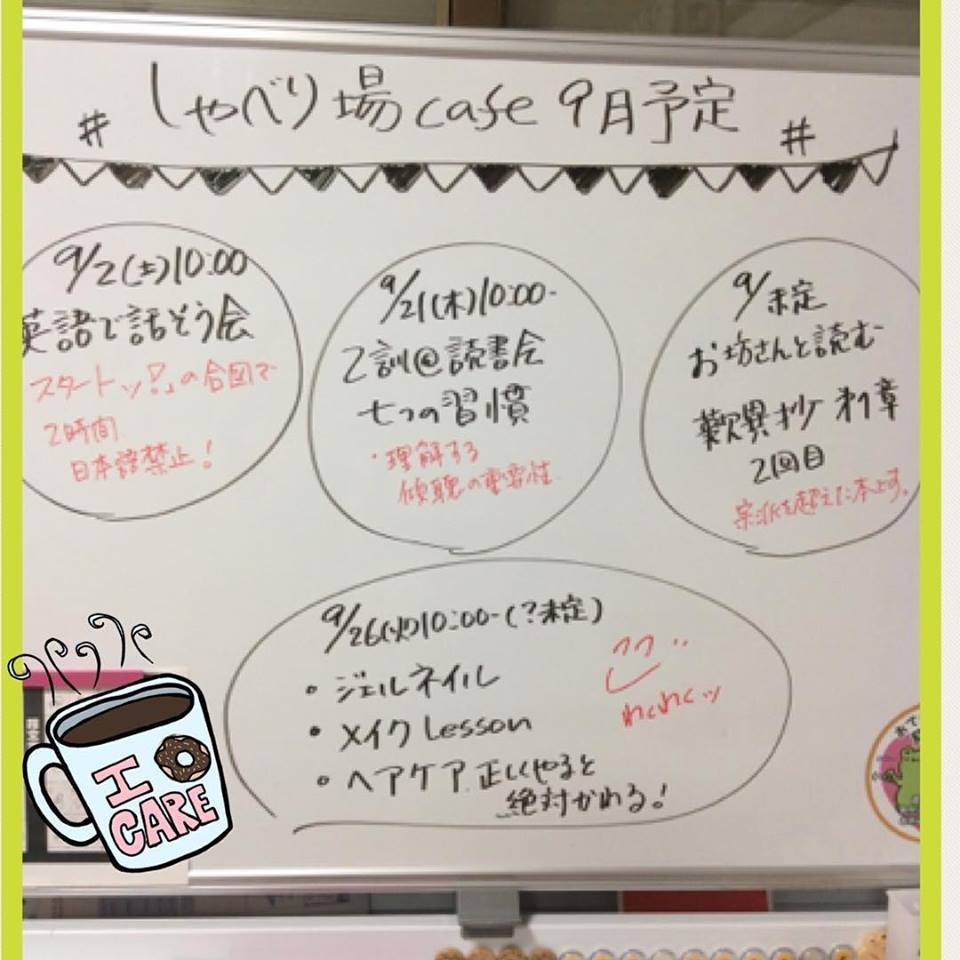 # しゃべり場cafe 9月予定 #
9/2(土)10:00
英語で話そう会
スタートッ!」の合図で
2時間
日本語禁止!
9/21(木)10:00-
乙訓@読書会
七つの習慣
・理解する
傾聴の重要性
9/未定
お坊さんと読む
歎異抄 オ1章
2回目
宗派を超えた本です。
9/26(火)10:00-(?未定)
• ジェルネイル
• メイクLesson
• ヘアケア正しくやると
絶対かわる!
わくわくッ
I
CARE